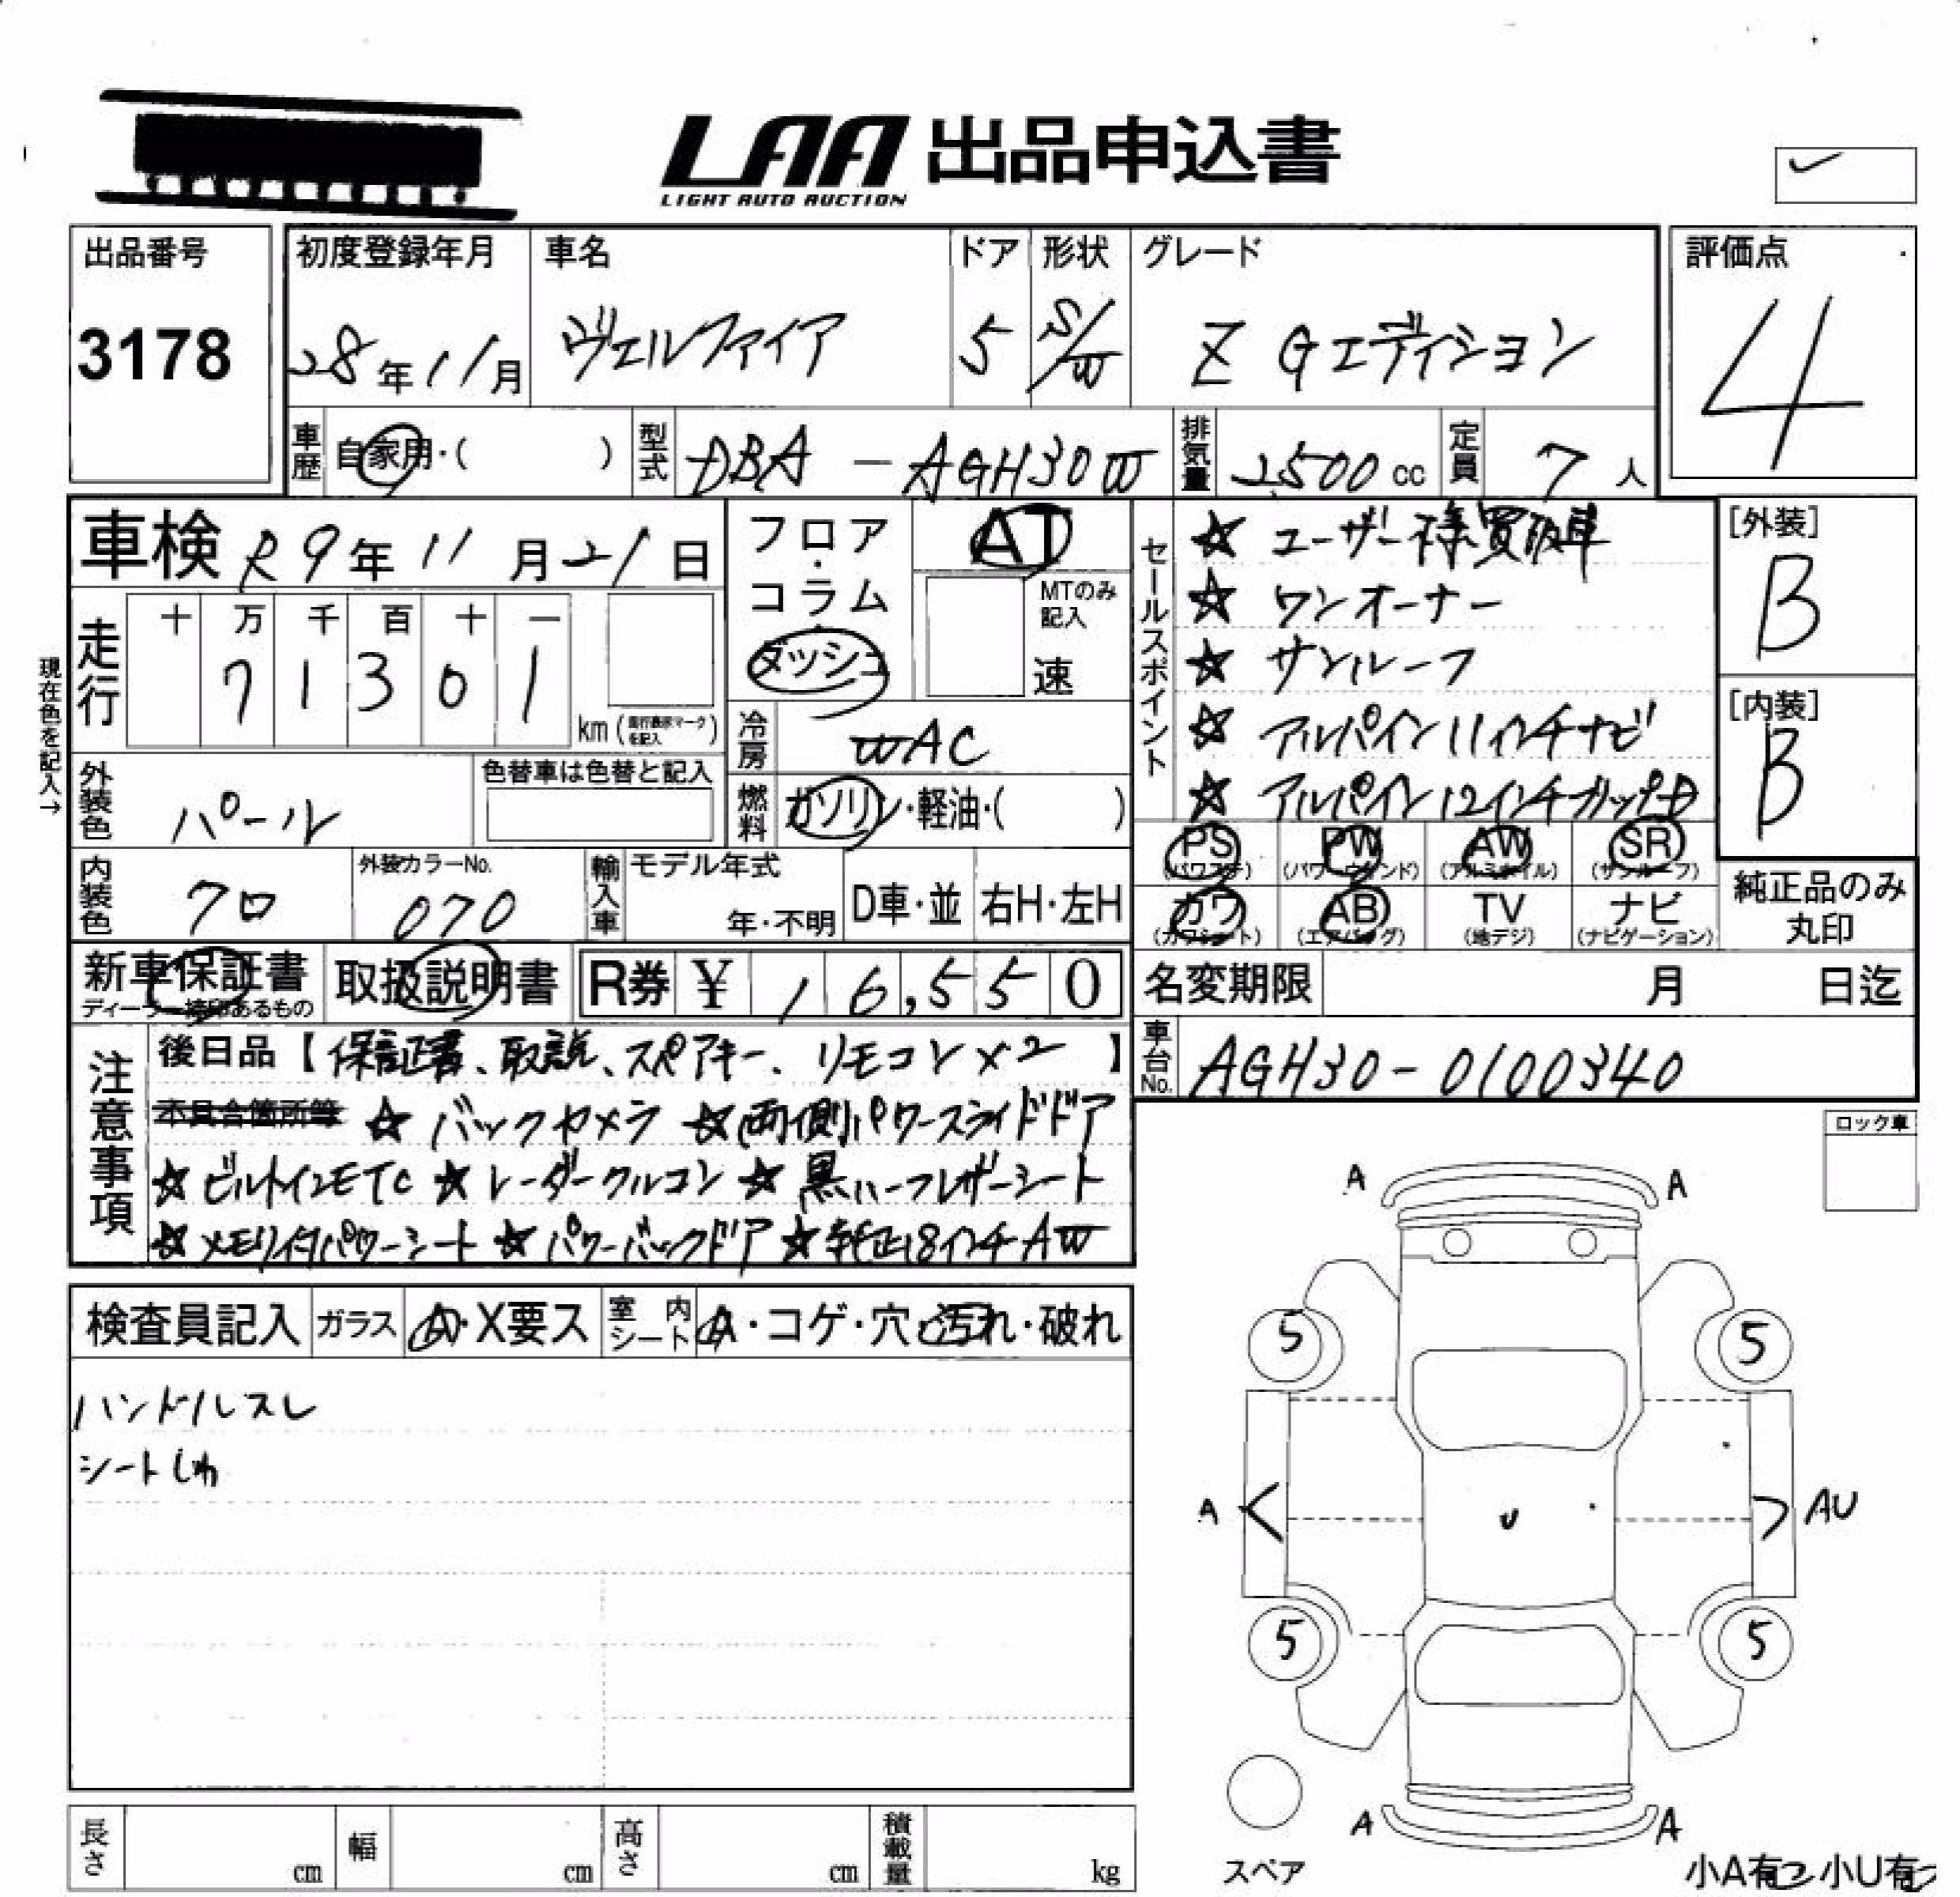 LAA 出品申込書
LIGHT AUTO AUCTION
出品番号
3178
初度登録年月
28年11月
車名
ヴェルファイア
ドア
5
形状
S/W
グレード
Z Gエディション
評価点
4
車歴
自家用・( )
型式
DBA - AGH30W
排気量
2,500 cc
定員
7 人
車検 R9年11月21日
フロア・コラム・ダッシュ
AT
MTのみ記入
速
セールスポイント
☆ ユーザー様買取車
☆ ワンオーナー
☆ サンルーフ
☆ アルパイン11インチナビ
☆ アルパイン12インチフリップD
[外装]
B
[内装]
B
現在色を記入→
走行
十 万 千 百 十 一
7 1 3 0 1
km (走行表示マークを記入)
冷房
WAC
燃料
ガソリン・軽油・( )
外装色
パール
色替車は色替と記入
内装色
クロ
外装カラーNo.
070
輸入車
モデル年式
年・不明
D車・並
右H・左H
PS (パワステ)
PW (パワーウィンド)
AW (アルミホイル)
SR (サンルーフ)
カワ (カワシート)
AB (エアバッグ)
TV (地デジ)
ナビ (ナビゲーション)
純正品のみ丸印
新車保証書
ディーラー捺印あるもの
取扱説明書
R券 ¥ 16,550
名変期限 月 日迄
車台No.
AGH30-0100340
注意事項
後日品【保証書、取説、スペアキー、リモコン×2】
不具合箇所等 ☆ バックカメラ ☆両側パワースライドドア
☆ビルトインETC ☆レーダークルコン ☆ 黒ハーフレザーシート
☆メモリ付パワーシート ☆パワーバックドア ☆純正18インチAW
検査員記入
ガラス
A・X要ス
室内シート
A・コゲ・穴・汚れ・破れ
ハンドルスレ
シートしわ
ロック車
A A
5 5
A AU
U
5 5
A A
スペア
小A有 小U有
長さ cm
幅 cm
高さ cm
積載量 kg